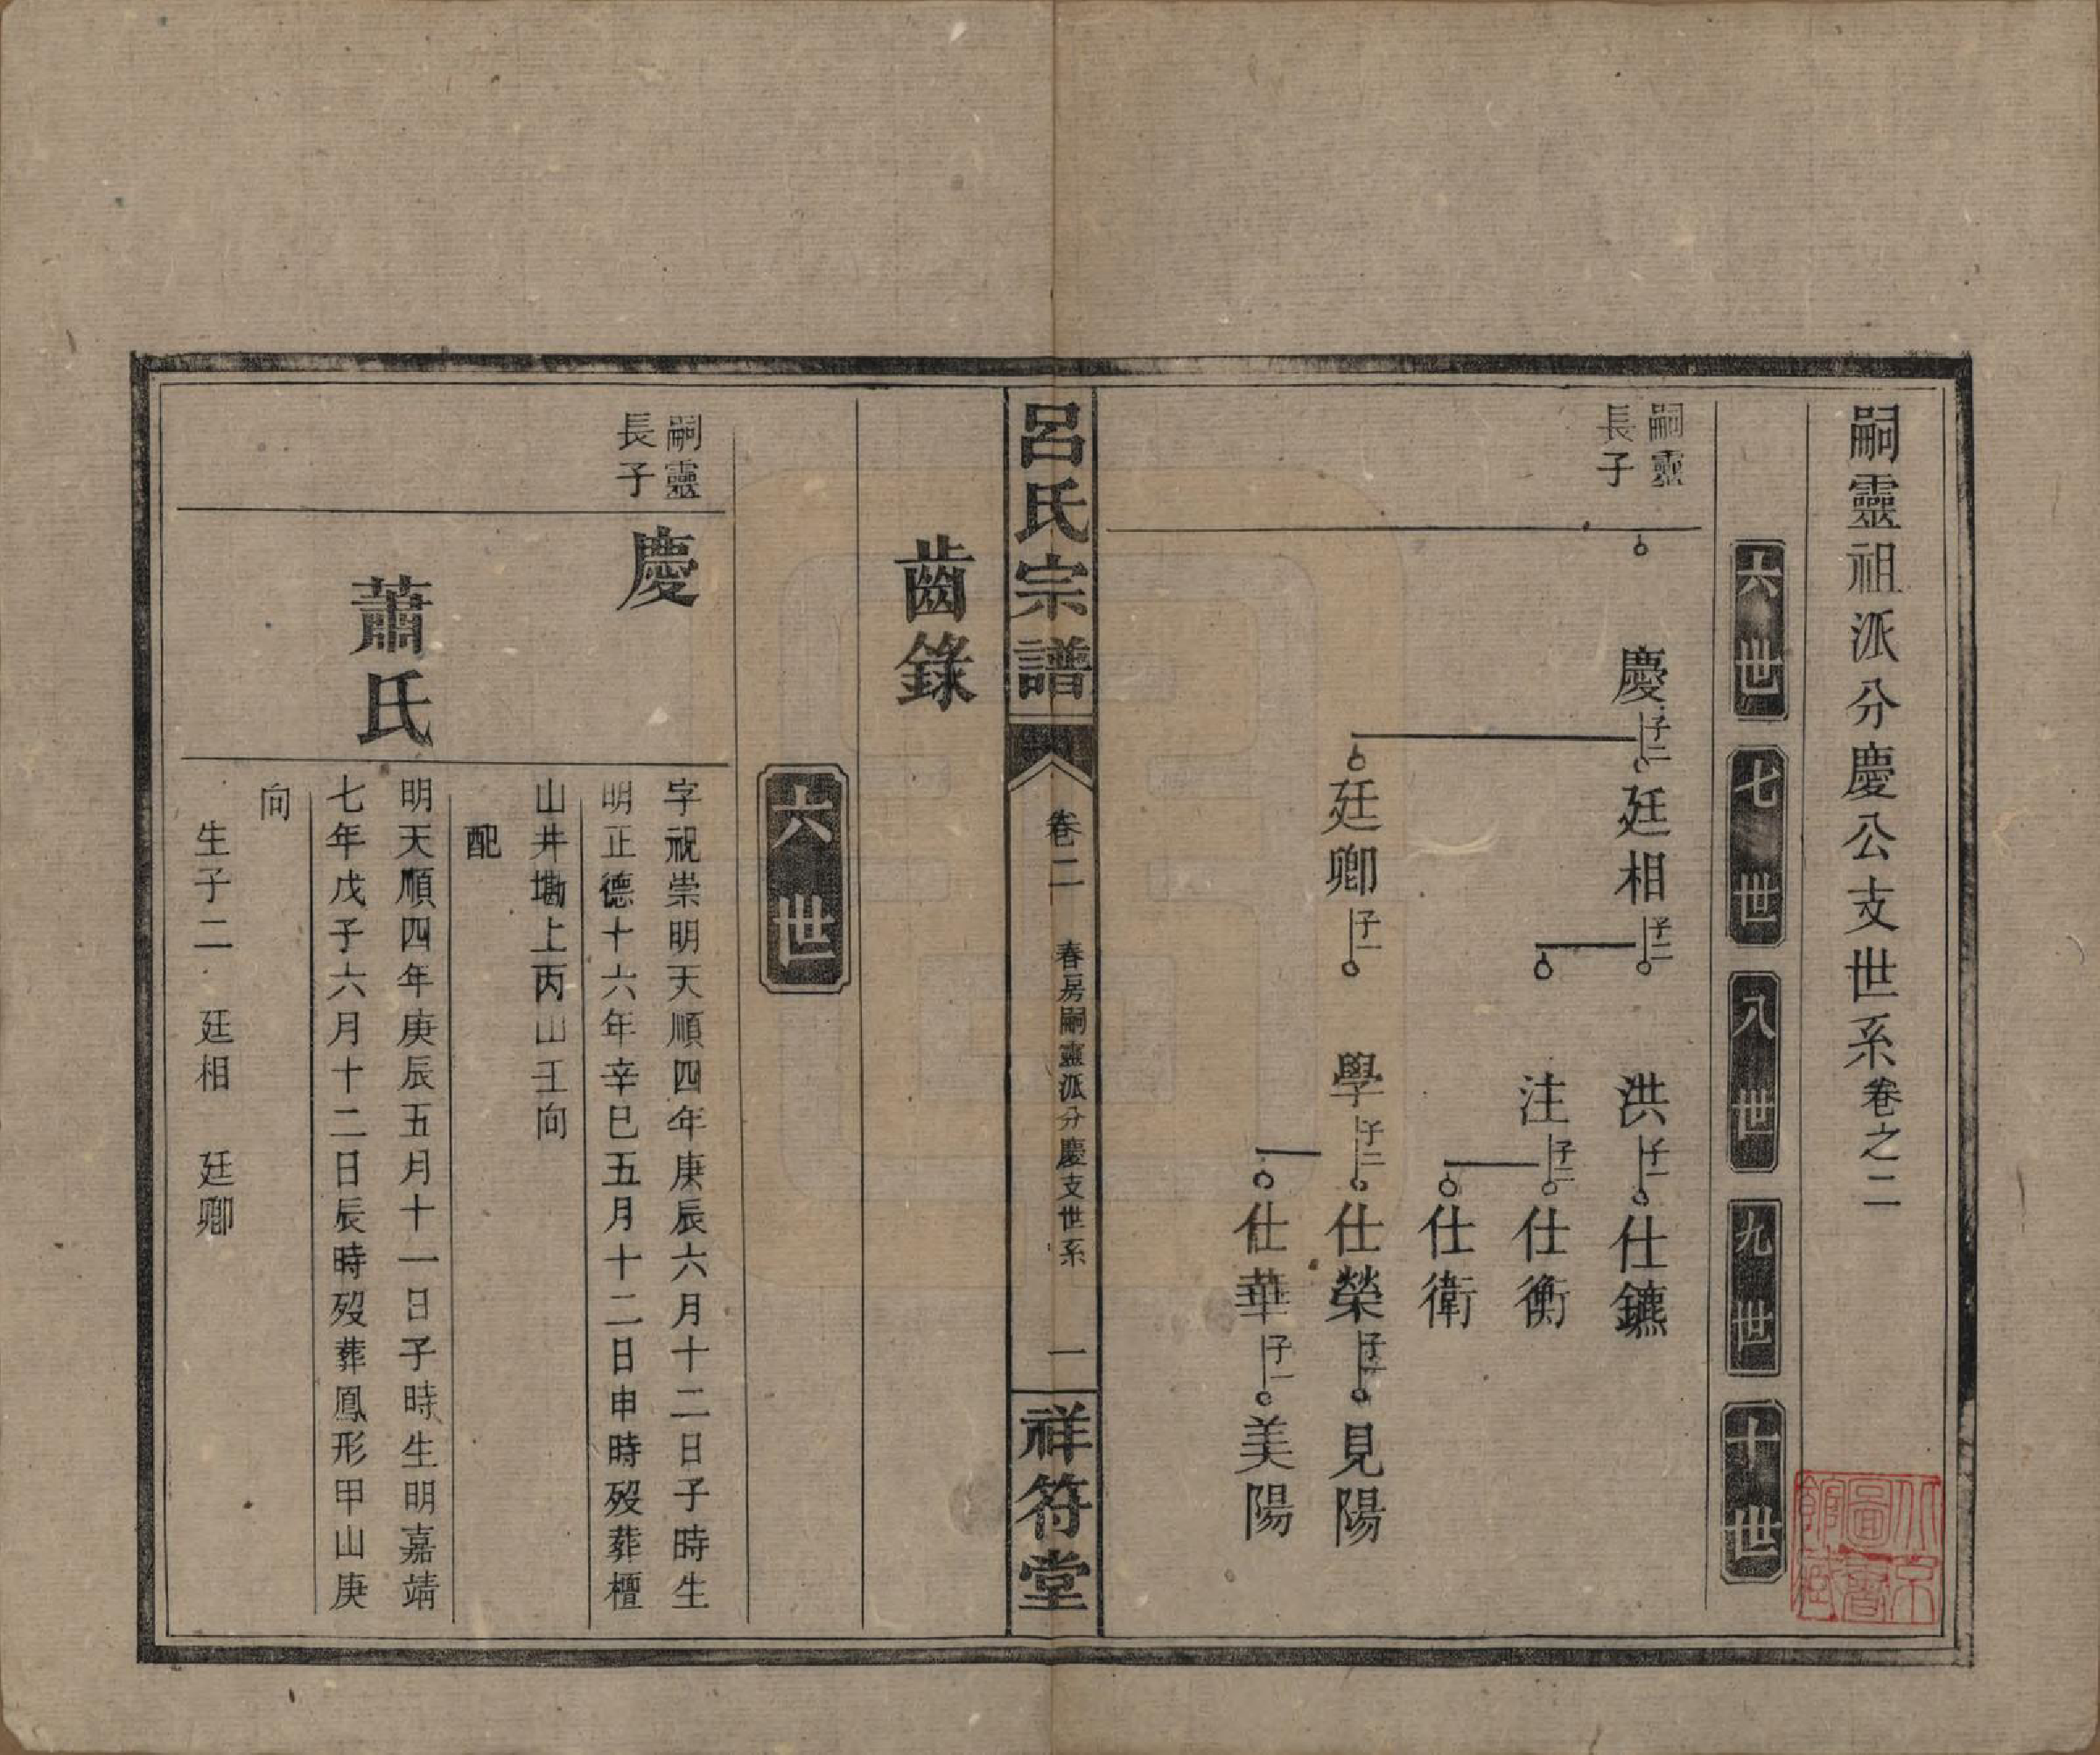 嗣靈祖派分慶公支世系卷之二
六世
七世
八世
九世
十世
嗣靈
長子
慶子二
廷相子二
洪子一
仕鑣
注子二
仕衡
仕衛
廷卿子一
學子二
仕榮子一
見陽
仕華子一
美陽
呂氏宗譜
卷二
春房嗣靈派分慶支世系
一
祥符堂
齒錄
六世
嗣靈
長子
慶
字視崇明天順四年庚辰六月十二日子時生
明正德十六年辛巳五月十二日申時歿葬檀
山井墈上丙山壬向
配
蕭氏
明天順四年庚辰五月十一日子時生明嘉靖
七年戊子六月十二日辰時歿葬鳳形甲山庚
向
生子二 廷相 廷卿
北京
圖書
館藏